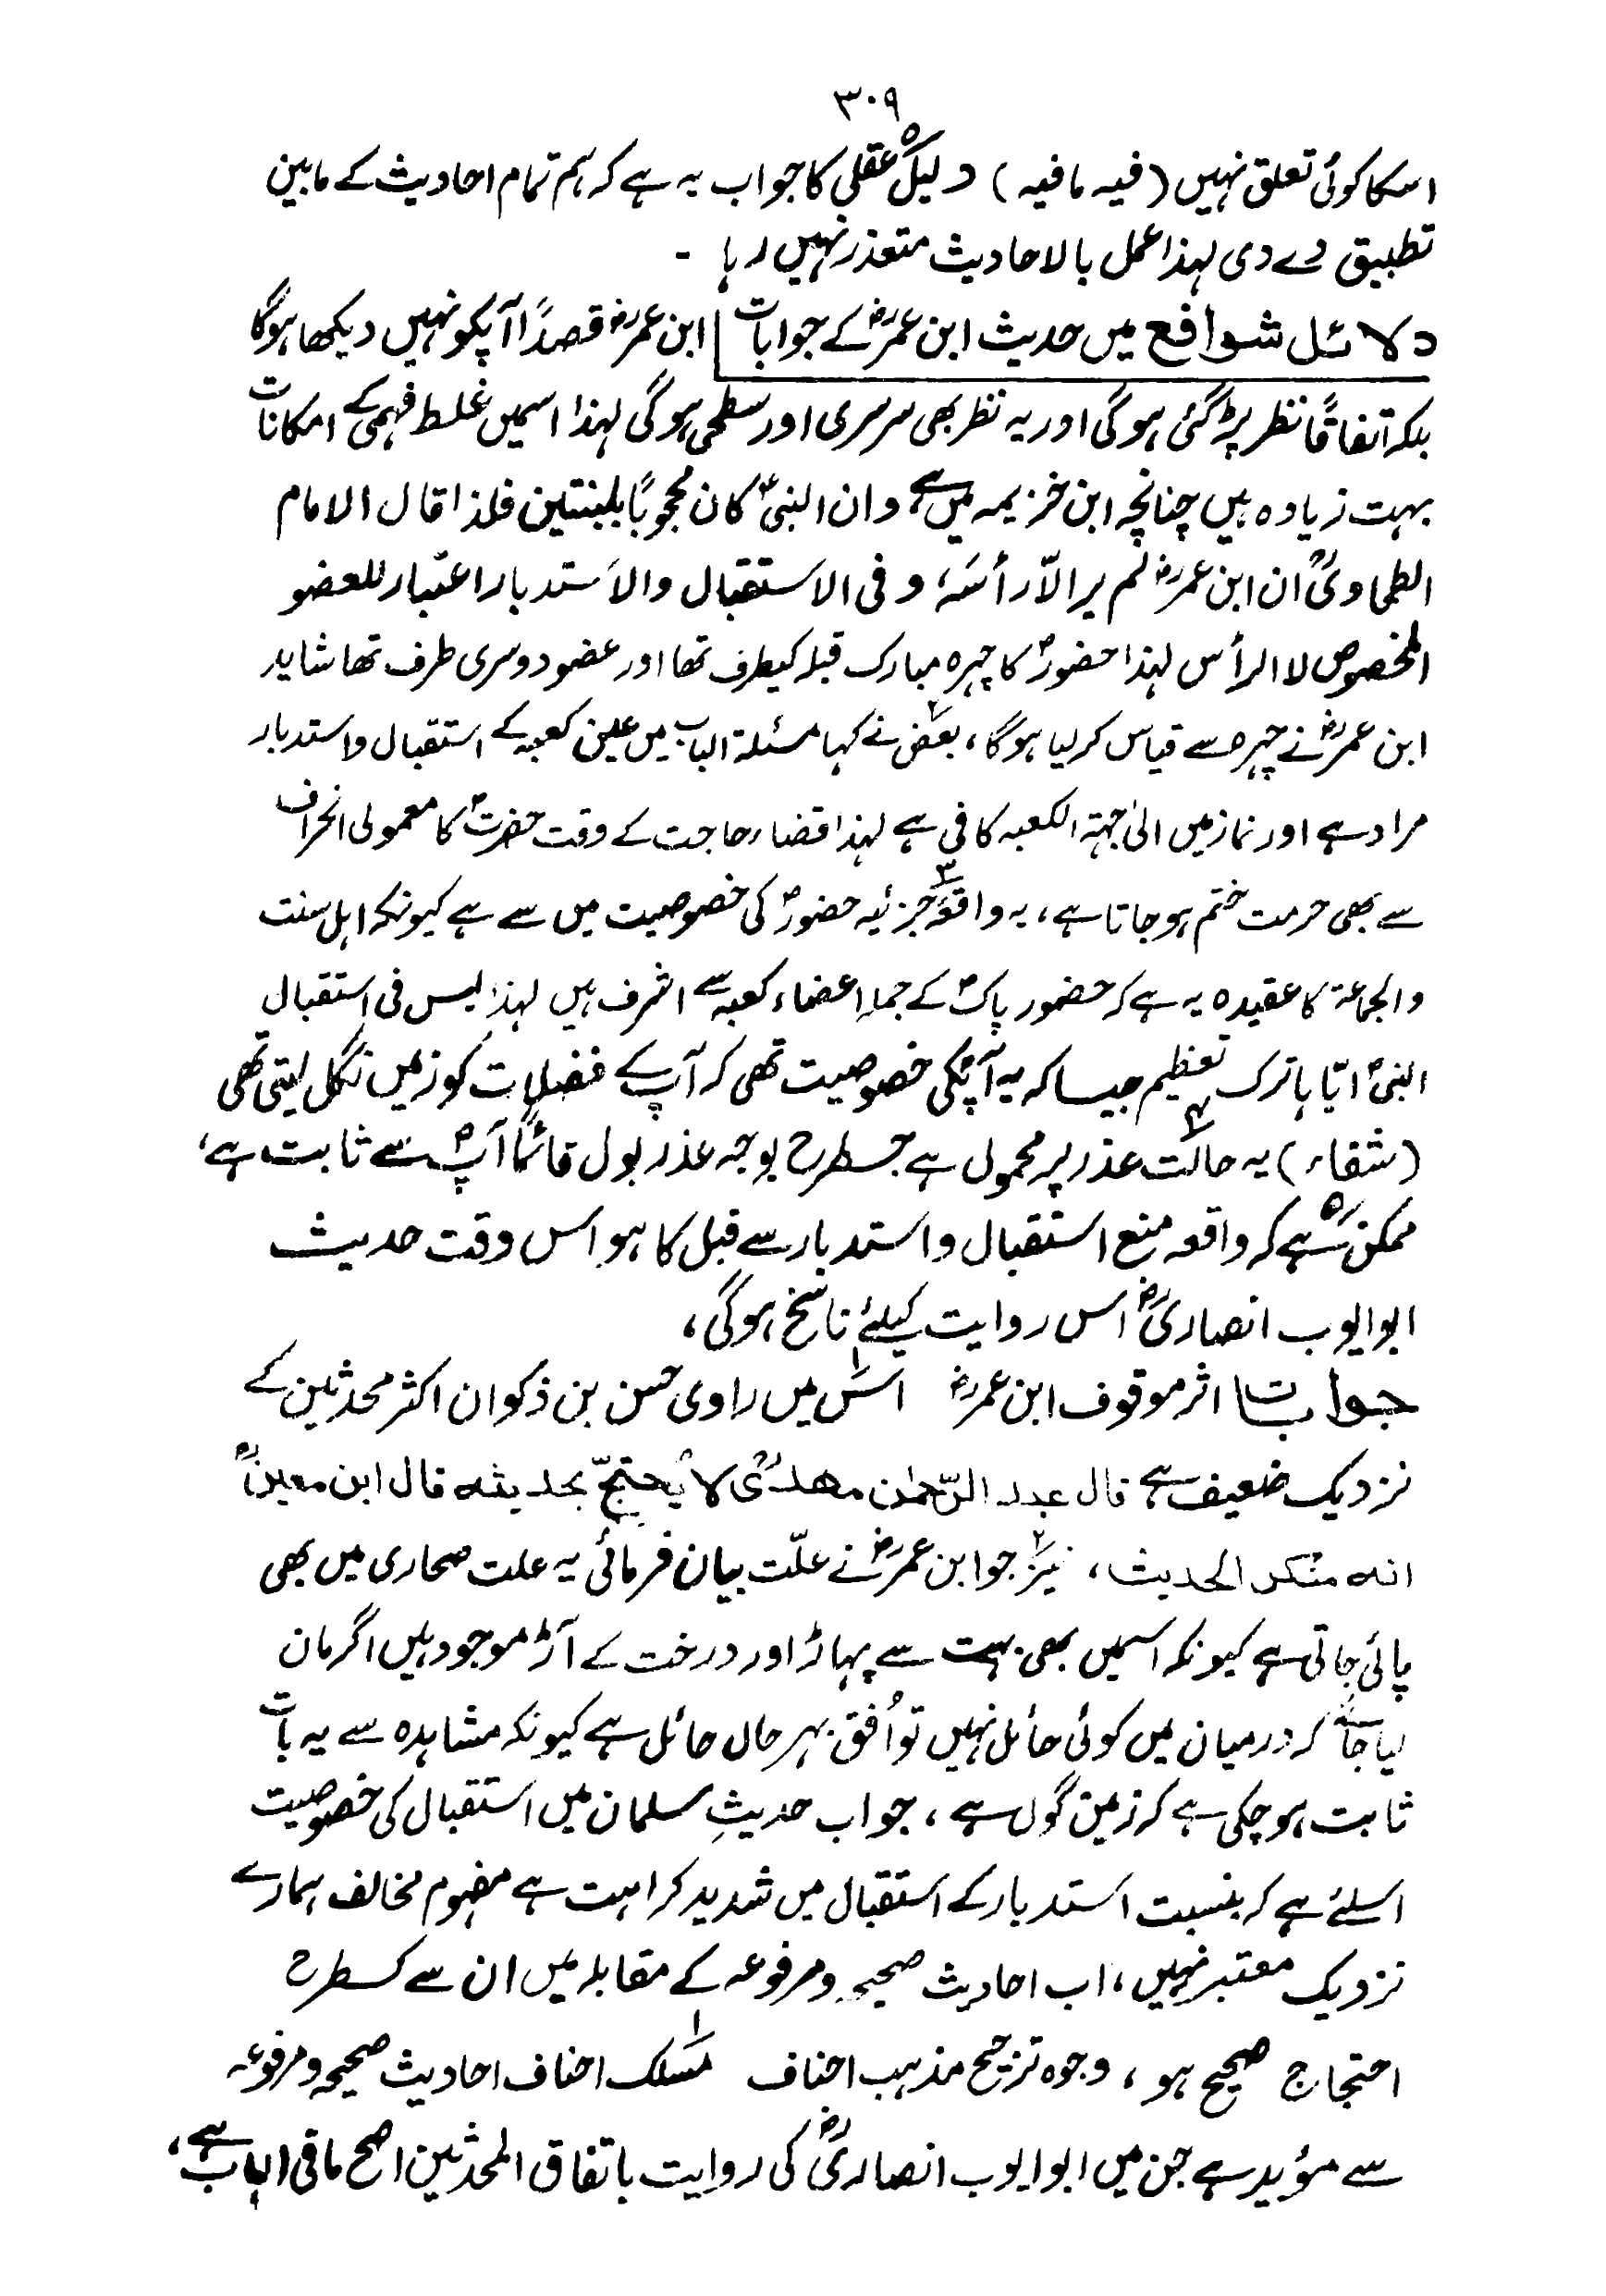 ۳۰۹
اسکا کوئی تعلق نہیں (فیہ مافیہ) دلیل۵ عقلی کا جواب یہ ہے کہ ہم تمام احادیث کے مابین
تطبیق دے دی لہذا عمل بالاحادیث متعذر نہیں رہا -
دلائل شوافع میں حدیث ابن عمرؓ کے جوابات ابن عمرؓ قصداً آپکو نہیں دیکھا ہوگا
بلکہ اتفاقًا نظر پڑ گئی ہوگی اور یہ نظر بھی سرسری اور سطحی ہوگی لہذا اسمیں غلط فہمی کے امکانات
بہت زیادہ ہیں چنانچہ ابن خزیمہ میں ہے وان النبیؐ کان محجوبًا بلبنتین فلذا قال الامام
الطحاویؒ ان ابن عمرؓ لم یر الّا رأسَہٗ وفی الاستقبال والاستدبار اعتبار للعضو
المخصوص لا الرأس لہذا حضورؐ کا چہرہ مبارک قبلہ کیطرف تھا اور عضو دوسری طرف تھا شاید
ابن عمرؓ نے چہرہ سے قیاس کرلیا ہوگا، بعض۲ نے کہا مسئلۃ الباب میں عین کعبہ کے استقبال واستدبار
مراد ہے اور نماز میں الیٰ جہۃ الکعبہ کافی ہے لہذا قضاء حاجت کے وقت حضرتؐ کا معمولی انحراف
سے بھی حرمت ختم ہوجاتا ہے، یہ واقعۂ۳ جزئیہ حضورؐ کی خصوصیت میں سے ہے کیونکہ اہل سنت
والجماعۃ کا عقیدہ یہ ہے کہ حضور پاکؐ کے جملہ اعضاء کعبہ سے اشرف ہیں لہذا لیس فی استقبال
النبیؐ ایّاہا ترک تعظیم جیسا کہ یہ آپؐکی خصوصیت تھی کہ آپؐ کے فضلات کو زمیں نگل لیتی تھی
(شفاء) یہ حالت۴ عذر پر محمول ہے جسطرح بوجہ عذر بول قائمًا آپؐ سے ثابت ہے،
ممکن۵ ہے کہ واقعہ منع استقبال واستدبار سے قبل کا ہو اس وقت حدیث
ابو ایوب انصاریؓ اس روایت کیلئے ناسخ ہوگی،
جوابات اثر موقوف ابن عمرؓ اس۱ میں راوی حسن بن ذکوان اکثر محدثین کے
نزدیک ضعیف ہے قال عبد الرّحمٰن مھدیؒ لا یُحتجّ بحدیثہ قال ابن معینؒ
انہ منکر الحدیث، نیز۲ جو ابن عمرؓ نے علّت بیان فرمائی یہ علت صحاری میں بھی
پائی جاتی ہے کیونکہ اسمیں بھی بہت سے پہاڑ اور درخت کے آڑ موجود ہیں اگر مان
لیا جائے کہ درمیان میں کوئی حائل نہیں تو اُفق بہر حال حائل ہے کیونکہ مشاہدہ سے یہ بات
ثابت ہوچکی ہے کہ زمین گول ہے، جواب حدیثِ سلمان میں استقبال کی خصوصیت
اسلئے ہے کہ بنسبت استدبار کے استقبال میں شدید کراہت ہے مفہوم مخالف ہمارے
نزدیک معتبر نہیں، اب احادیث صحیحہ ومرفوعہ کے مقابلہ میں ان سے کسطرح
احتجاج صحیح ہو، وجوہ ترجیح مذہب احناف مسلک۱ احناف احادیث صحیحہ ومرفوعہ
سے مؤید ہے جن میں ابو ایوب انصاریؓ کی روایت باتفاق المحدثین اصح مافی الباب ہے،